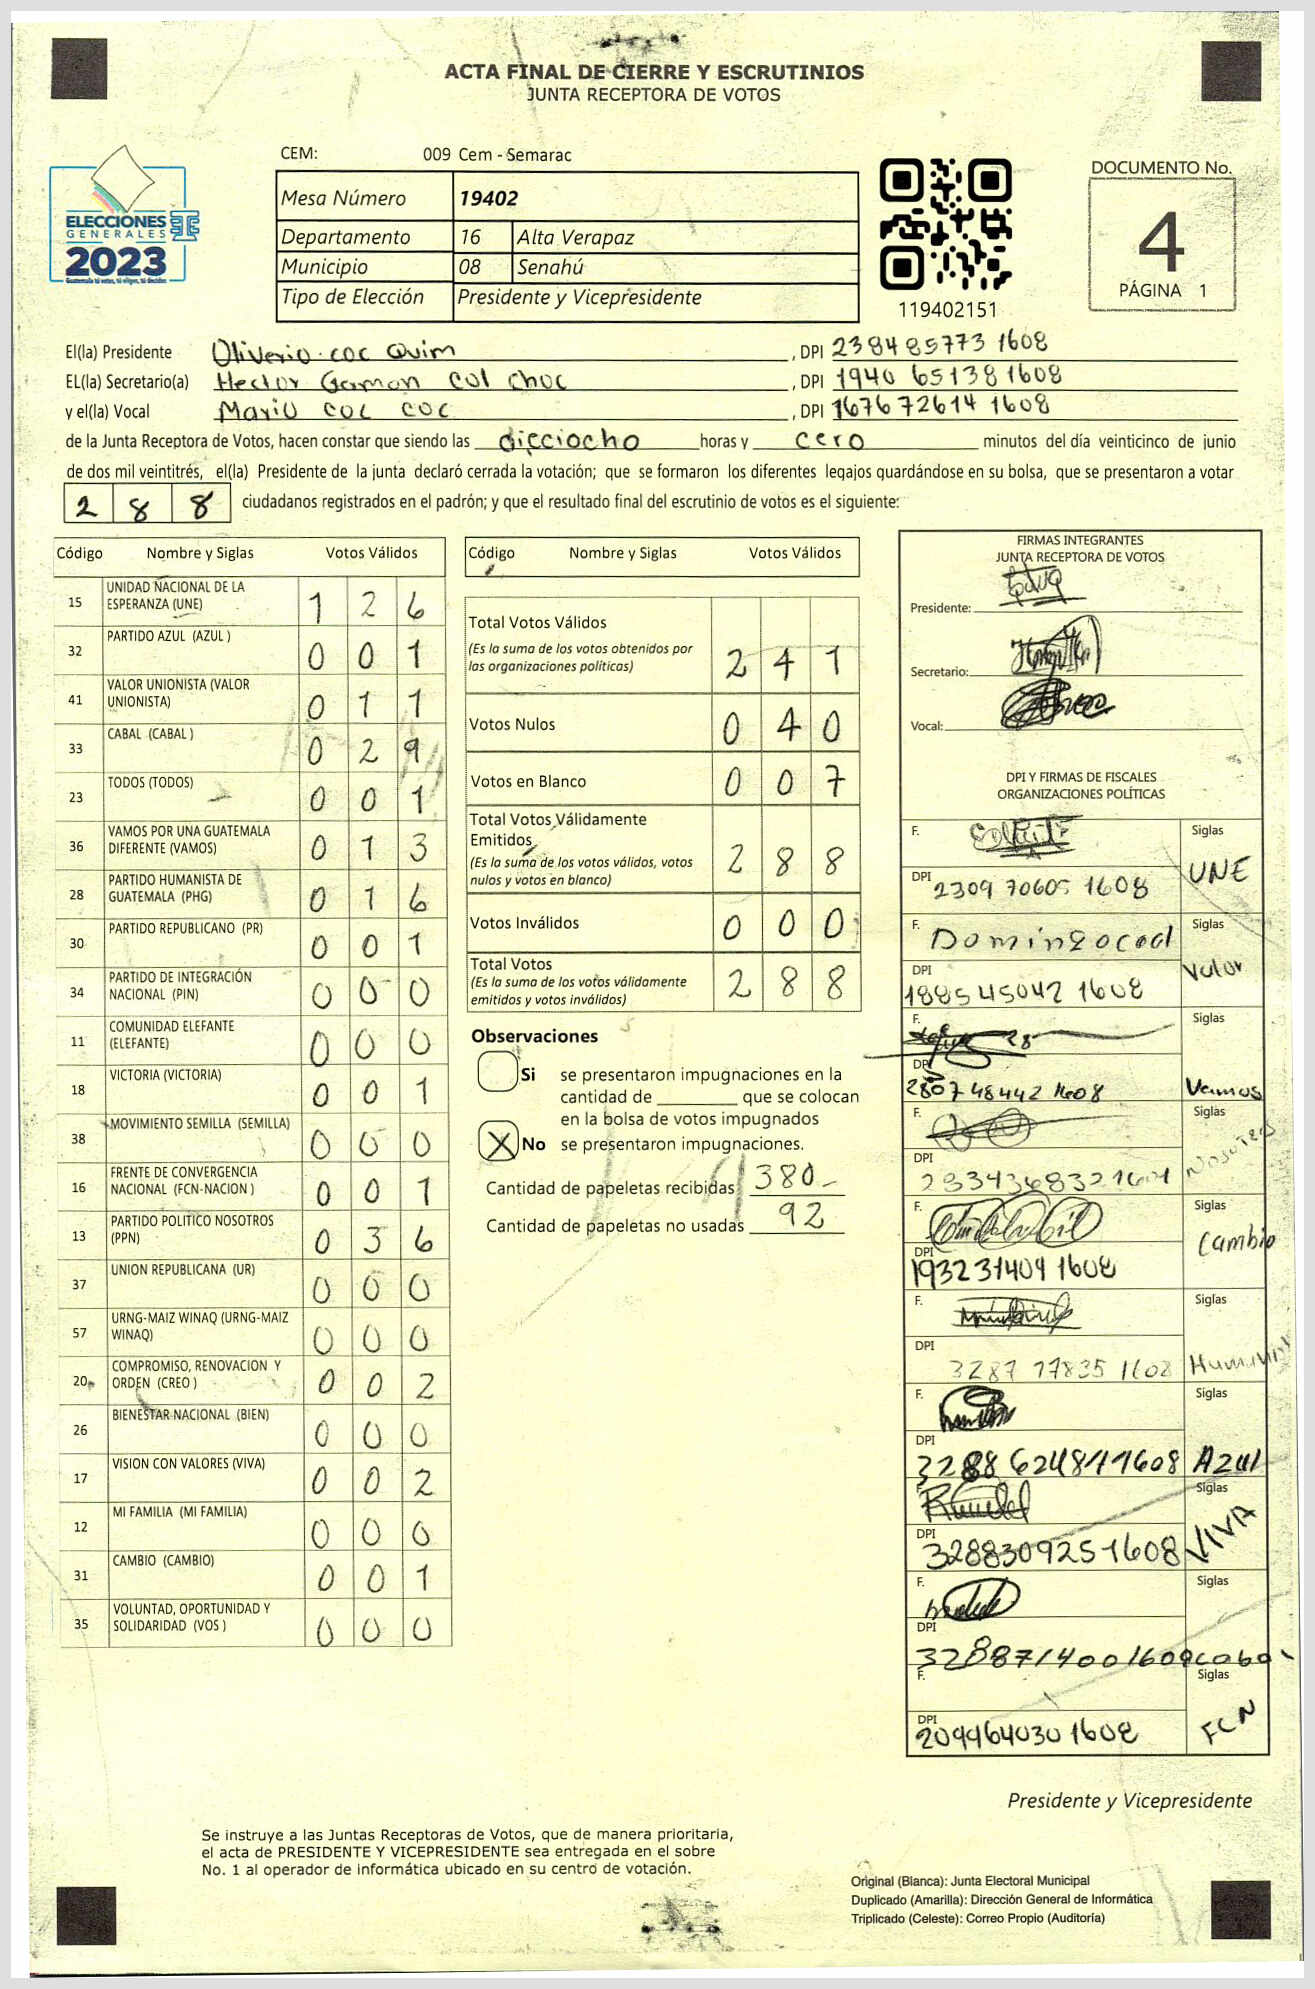 ACTA FINAL DE CIERRE Y ESCRUTINIOS
JUNTA RECEPTORA DE VOTOS
CEM: 009 Cem - Semarac
ELECCIONES
GENERALES
2023
Guatemala tú votas, tú eliges, tú decides
Mesa Número 19402
Departamento 16 Alta Verapaz
Municipio 08 Senahú
Tipo de Elección Presidente y Vicepresidente
119402151
DOCUMENTO No.
4
PÁGINA 1
El(la) Presidente Oliverio coc Quim , DPI 238485773 1608
EL(la) Secretario(a) Hector German Col choc , DPI 1940 65138 1608
y el(la) Vocal Mario coc coc , DPI 1676 72614 1608
de la Junta Receptora de Votos, hacen constar que siendo las dieciocho horas y cero minutos del día veinticinco de junio
de dos mil veintitrés, el(la) Presidente de la junta declaró cerrada la votación; que se formaron los diferentes legajos quardándose en su bolsa, que se presentaron a votar
2 8 8 ciudadanos registrados en el padrón; y que el resultado final del escrutinio de votos es el siguiente:
Código Nombre y Siglas Votos Válidos
15 UNIDAD NACIONAL DE LA ESPERANZA (UNE) 1 2 6
32 PARTIDO AZUL (AZUL ) 0 0 1
41 VALOR UNIONISTA (VALOR UNIONISTA) 0 1 1
33 CABAL (CABAL ) 0 2 9
23 TODOS (TODOS) 0 0 1
36 VAMOS POR UNA GUATEMALA DIFERENTE (VAMOS) 0 1 3
28 PARTIDO HUMANISTA DE GUATEMALA (PHG) 0 1 6
30 PARTIDO REPUBLICANO (PR) 0 0 1
34 PARTIDO DE INTEGRACIÓN NACIONAL (PIN) 0 0 0
11 COMUNIDAD ELEFANTE (ELEFANTE) 0 0 0
18 VICTORIA (VICTORIA) 0 0 1
38 MOVIMIENTO SEMILLA (SEMILLA) 0 0 0
16 FRENTE DE CONVERGENCIA NACIONAL (FCN-NACION ) 0 0 1
13 PARTIDO POLITICO NOSOTROS (PPN) 0 3 6
37 UNION REPUBLICANA (UR) 0 0 0
57 URNG-MAIZ WINAQ (URNG-MAIZ WINAQ) 0 0 0
20 COMPROMISO, RENOVACION Y ORDEN (CREO ) 0 0 2
26 BIENESTAR NACIONAL (BIEN) 0 0 0
17 VISION CON VALORES (VIVA) 0 0 2
12 MI FAMILIA (MI FAMILIA) 0 0 0
31 CAMBIO (CAMBIO) 0 0 1
35 VOLUNTAD, OPORTUNIDAD Y SOLIDARIDAD (VOS ) 0 0 0
Código Nombre y Siglas Votos Válidos
Total Votos Válidos
(Es la suma de los votos obtenidos por
las organizaciones políticas) 2 4 1
Votos Nulos 0 4 0
Votos en Blanco 0 0 7
Total Votos Válidamente
Emitidos
(Es la suma de los votos válidos, votos
nulos y votos en blanco) 2 8 8
Votos Inválidos 0 0 0
Total Votos
(Es la suma de los votos válidamente
emitidos y votos inválidos) 2 8 8
Observaciones
Si se presentaron impugnaciones en la
cantidad de ________ que se colocan
en la bolsa de votos impugnados
X No se presentaron impugnaciones.
Cantidad de papeletas recibidas 380
Cantidad de papeletas no usadas 92
FIRMAS INTEGRANTES
JUNTA RECEPTORA DE VOTOS
Presidente:
Secretario:
Vocal:
DPI Y FIRMAS DE FISCALES
ORGANIZACIONES POLÍTICAS
F. Siglas
DPI 2309 70605 1608 UNE
F. Domingo cod Siglas
DPI 1885 45042 1608 Valor
F. Siglas
DPI 2807 48442 1608 Vamos
F. Siglas
DPI Nosotros
F. Siglas
DPI 193231409 1608 Cambio
F. Siglas
DPI 3287 77835 1608
F. Siglas
DPI Azul
F. Siglas
DPI 328830925 1608 VIVA
F. Siglas
DPI 328871400 1608 cabal
F. Siglas
DPI 209964030 1608 FCN
Presidente y Vicepresidente
Se instruye a las Juntas Receptoras de Votos, que de manera prioritaria,
el acta de PRESIDENTE Y VICEPRESIDENTE sea entregada en el sobre
No. 1 al operador de informática ubicado en su centro de votación.
Original (Blanca): Junta Electoral Municipal
Duplicado (Amarilla): Dirección General de Informática
Triplicado (Celeste): Correo Propio (Auditoría)